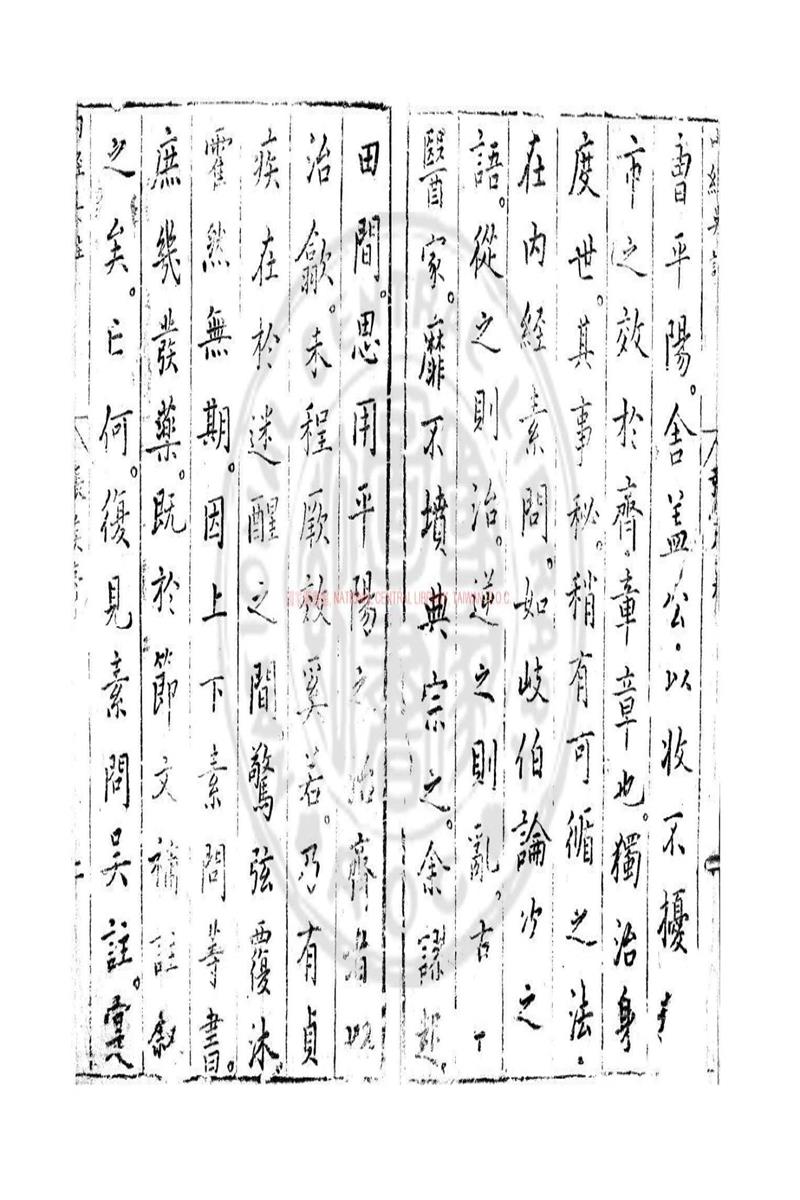 曹平陽。舍蓋公。以收不擾
市之效於齊。章章也。獨治身
度世。其事秘。稍有可循之法。
在内經素問。如岐伯論少之
語。從之則治。逆之則亂。古
醫家。靡不墳典宗之。余謬起
田間。思用平陽之治齊者
治歙。未程厥效奚若。乃有貞
疾在於迷醒之間。驚弦覆沐。
霍然無期。因上下素問等書。
庶幾發藥。既於節文
之矣。亡何。復見素問吳註。
NATIONAL CENTRAL LIBRARY, TAIWAN R.O.C